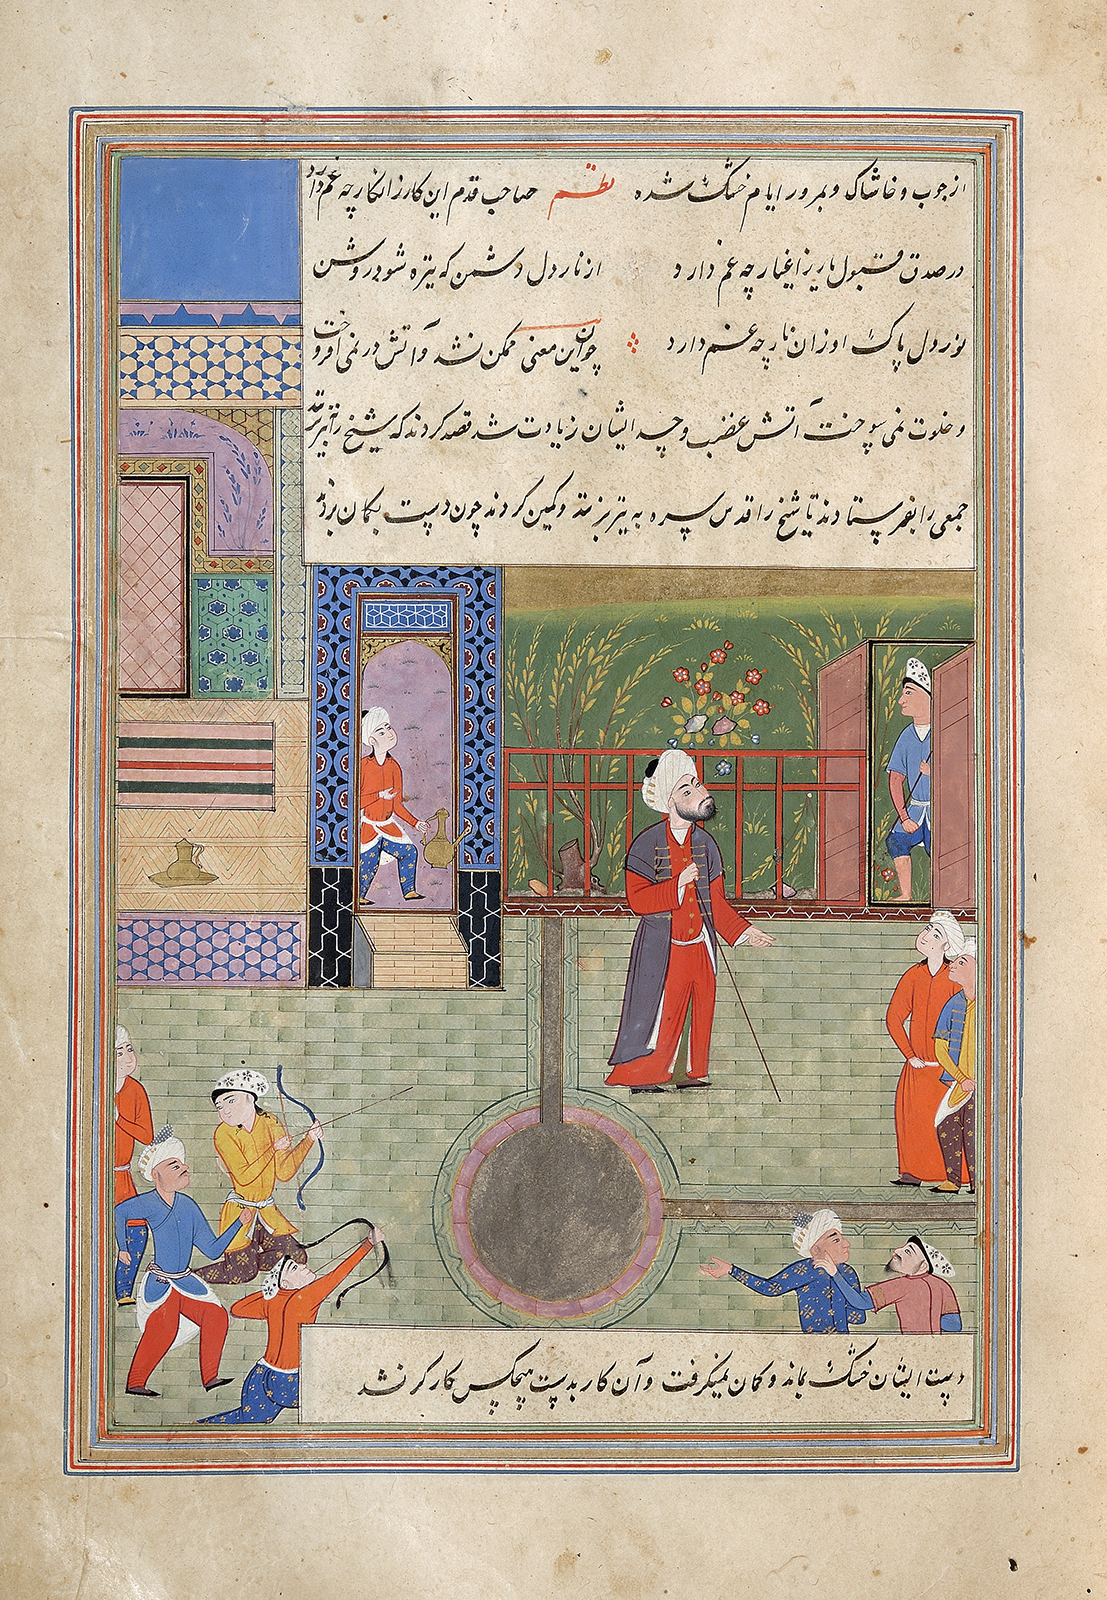 از چوب و خاشاک و بمرور ایام خشک شده نظم صاحب قدم این کار ز انکار چه غم دارد
در صدق و قبول یار ز اغیار چه غم دارد از نار دل دشمن که تیره شود روشن
نور دل پاک او زان نار چه غم دارد چون این معنی ممکن نشد و آتش در نمی افروخت
و خلوت نمی سوخت آتش غضب و حسد ایشان زیادت شد قصد کردند که شیخ را بتیر زنند
جمعی را بفرستادند تا شیخ را قدس سره به تیر بزنند و کمین کردند چون دست بکمان بردند
دست ایشان خشک بماند و کمان نمیگرفت و آن کار بدست هیچکس کارگر نشد